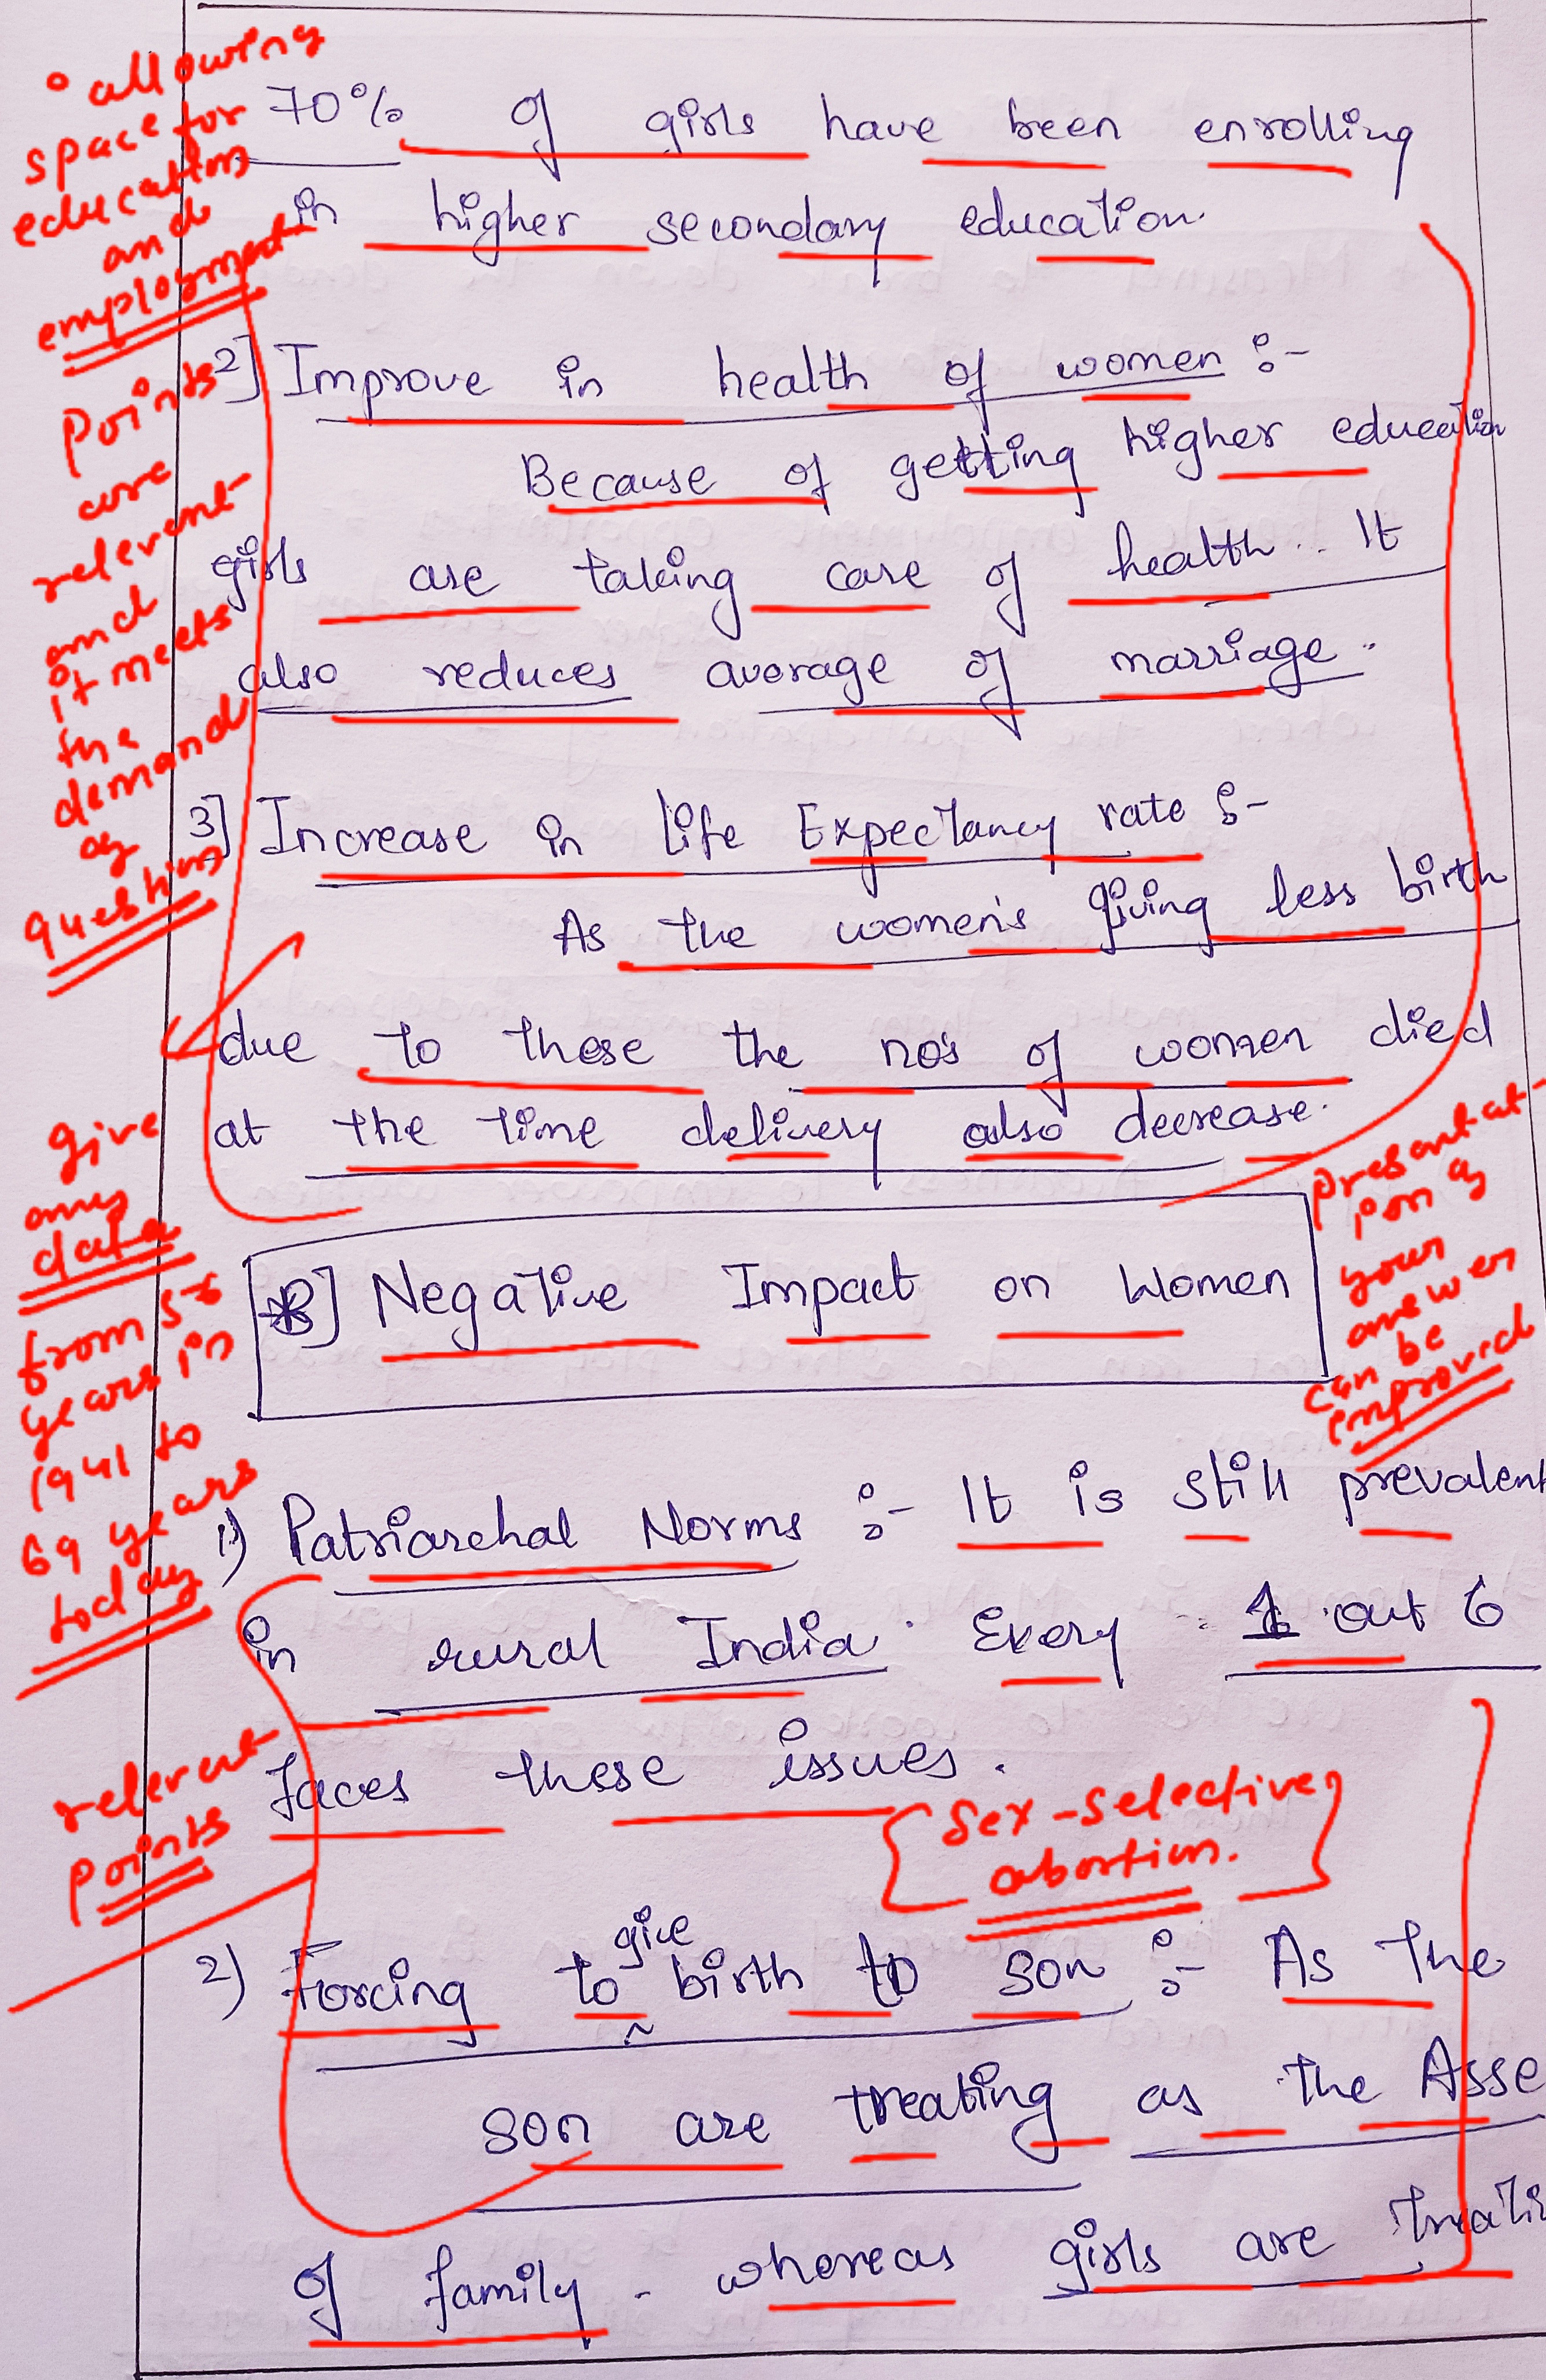 ° allowing
space for
education
and
employment
70% of girls have been enrolling
in higher secondary education.
Points
are
relevant
and
it meets
the
demand
of
question
2] Improve in health of women :-
Because of getting higher education
girls are taking care of health. It
also reduces average of marriage.
3] Increase in life Expectancy rate :-
As the women's giving less birth
due to these the no's of women died
at the time delivery also decrease.
give
any
data
from 56
years in
1941 to
69 years
today
presentat-
ion of
your
answer
can be
improved
[B] Negative Impact on Women
1) Patriarchal Norms :- It is still prevalent
in rural India. Every 1 out 6
faces these issues.
relevant
points
{ Sex-selective
abortion. }
2) Forcing to give birth to son :- As the
son are treating as the Asse
of family - whereas girls are treati